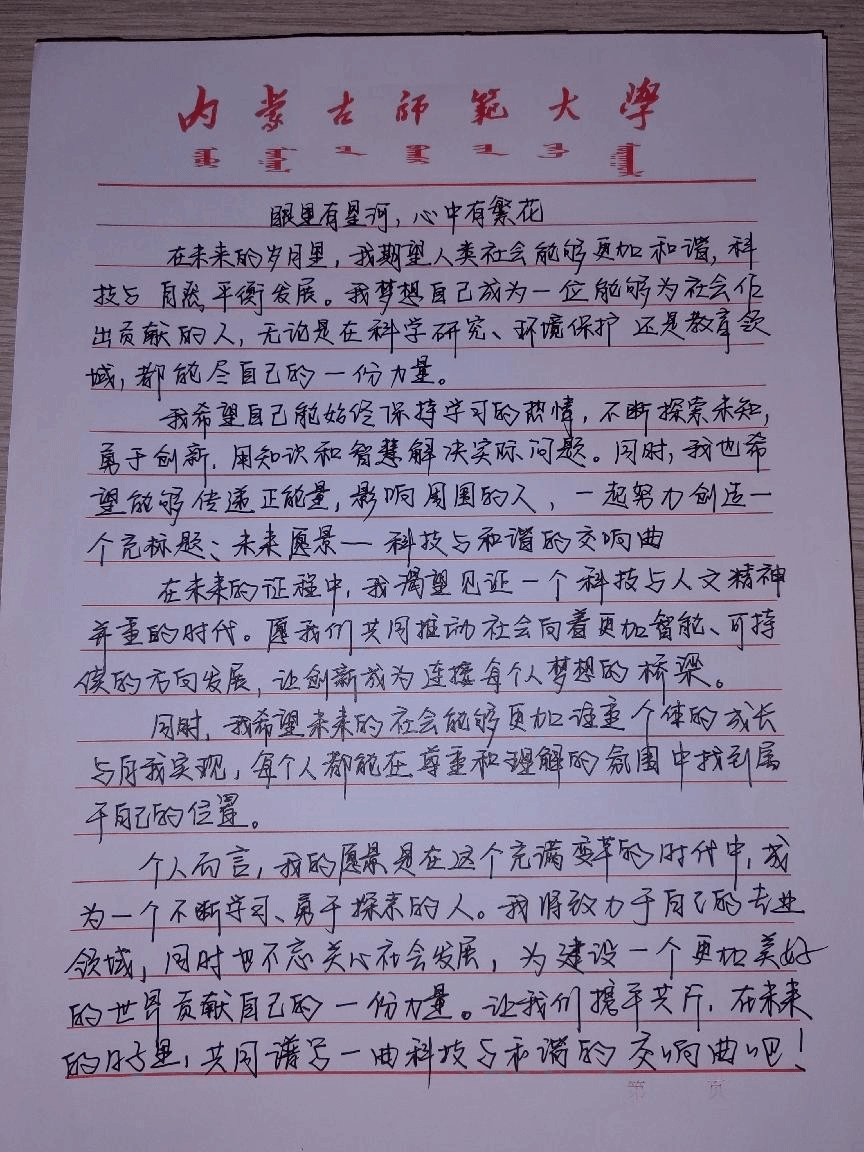 内蒙古师范大学
眼里有星河，心中有繁花
在未来的岁月里，我期望人类社会能够更加和谐，科
技与自然平衡发展。我梦想自己成为一位能够为社会作
出贡献的人，无论是在科学研究、环境保护还是教育领
域，都能尽自己的一份力量。
我希望自己能始终保持学习的热情，不断探索未知，
勇于创新，用知识和智慧解决实际问题。同时，我也希
望能够传递正能量，影响周围的人，一起努力创造一
个充标题：未来愿景—科技与和谐的交响曲
在未来的征程中，我渴望见证一个科技与人文精神
并重的时代。愿我们共同推动社会向着更加智能、可持
续的方向发展，让创新成为连接每个人梦想的桥梁。
同时，我希望未来的社会能够更加注重个体的成长
与自我实现，每个人都能在尊重和理解的氛围中找到属
于自己的位置。
个人而言，我的愿景是在这个充满变革的时代中，成
为一个不断学习、勇于探索的人。我将致力于自己的专业
领域，同时也不忘关心社会发展，为建设一个更加美好
的世界贡献自己的一份力量。让我们携手共，在未来
的日子里，共同谱写一曲科技与和谐的交响曲吧！
第 页